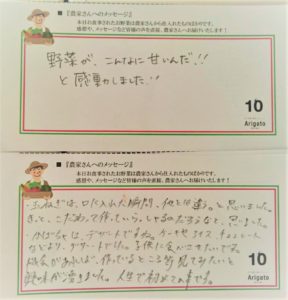 ■ 『農家さんへのメッセージ』
本日お食事されたお野菜は農家さんから仕入れたものばかりです。
感想や、メッセージなど皆様の声を直接、農家さんへお届けいたします！
野菜が、こんなに甘いんだ!!
と感動しました!!
10
Arigato
■ 『農家さんへのメッセージ』
本日お食事されたお野菜は農家さんから仕入れたものばかりです。
感想や、メッセージなど皆様の声を直接、農家さんへお届けいたします！
・玉ねぎは、口に入れた瞬間、他とは違う。と思いました。
きっと、こだわって作っていらっしゃるのだろうなと、思いました。
・かぼちゃは、デザートですね。ケーキやアイス チョコレート
などより、デザートでした。子供に食べさせたいです。
機会があれば、作っているところを見てみたいと
興味が湧きました。人生で初めての
10
Arigato